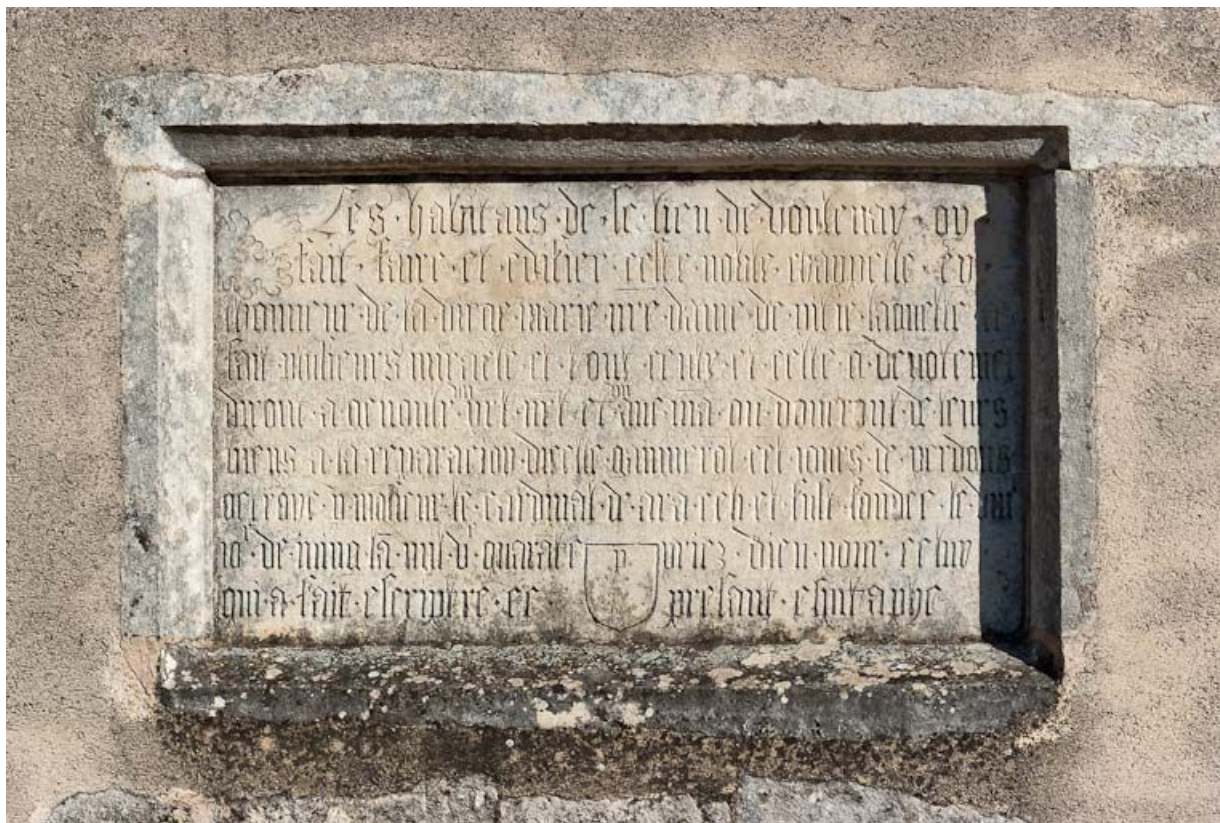 Les · habitans · de · se · lieu · de · voulenay · on
fait · faire · et · edifier · ceste · noble · chappelle · en ·
lhonneur · de · la · virge · marie · nre · dame · de · laquelle
fait · plusieurs · miracle · et · tous · ceulx · et · celle · q · devotemet
diront · a · genoulx · et · ave · ma · ou · doneront · de · leurs
biens · a · la · reparacion · dicelle · gaigneront · cet · iours · de · pardons
octroye · p · mosieur · le · cardinal · de · ara · celi · et · fust · fonder · le
io · de · iung · la · mil · vc · quarate p priez · dieu · pour · celuy
qui · a · fait · escripre · ce presant · epitaphe